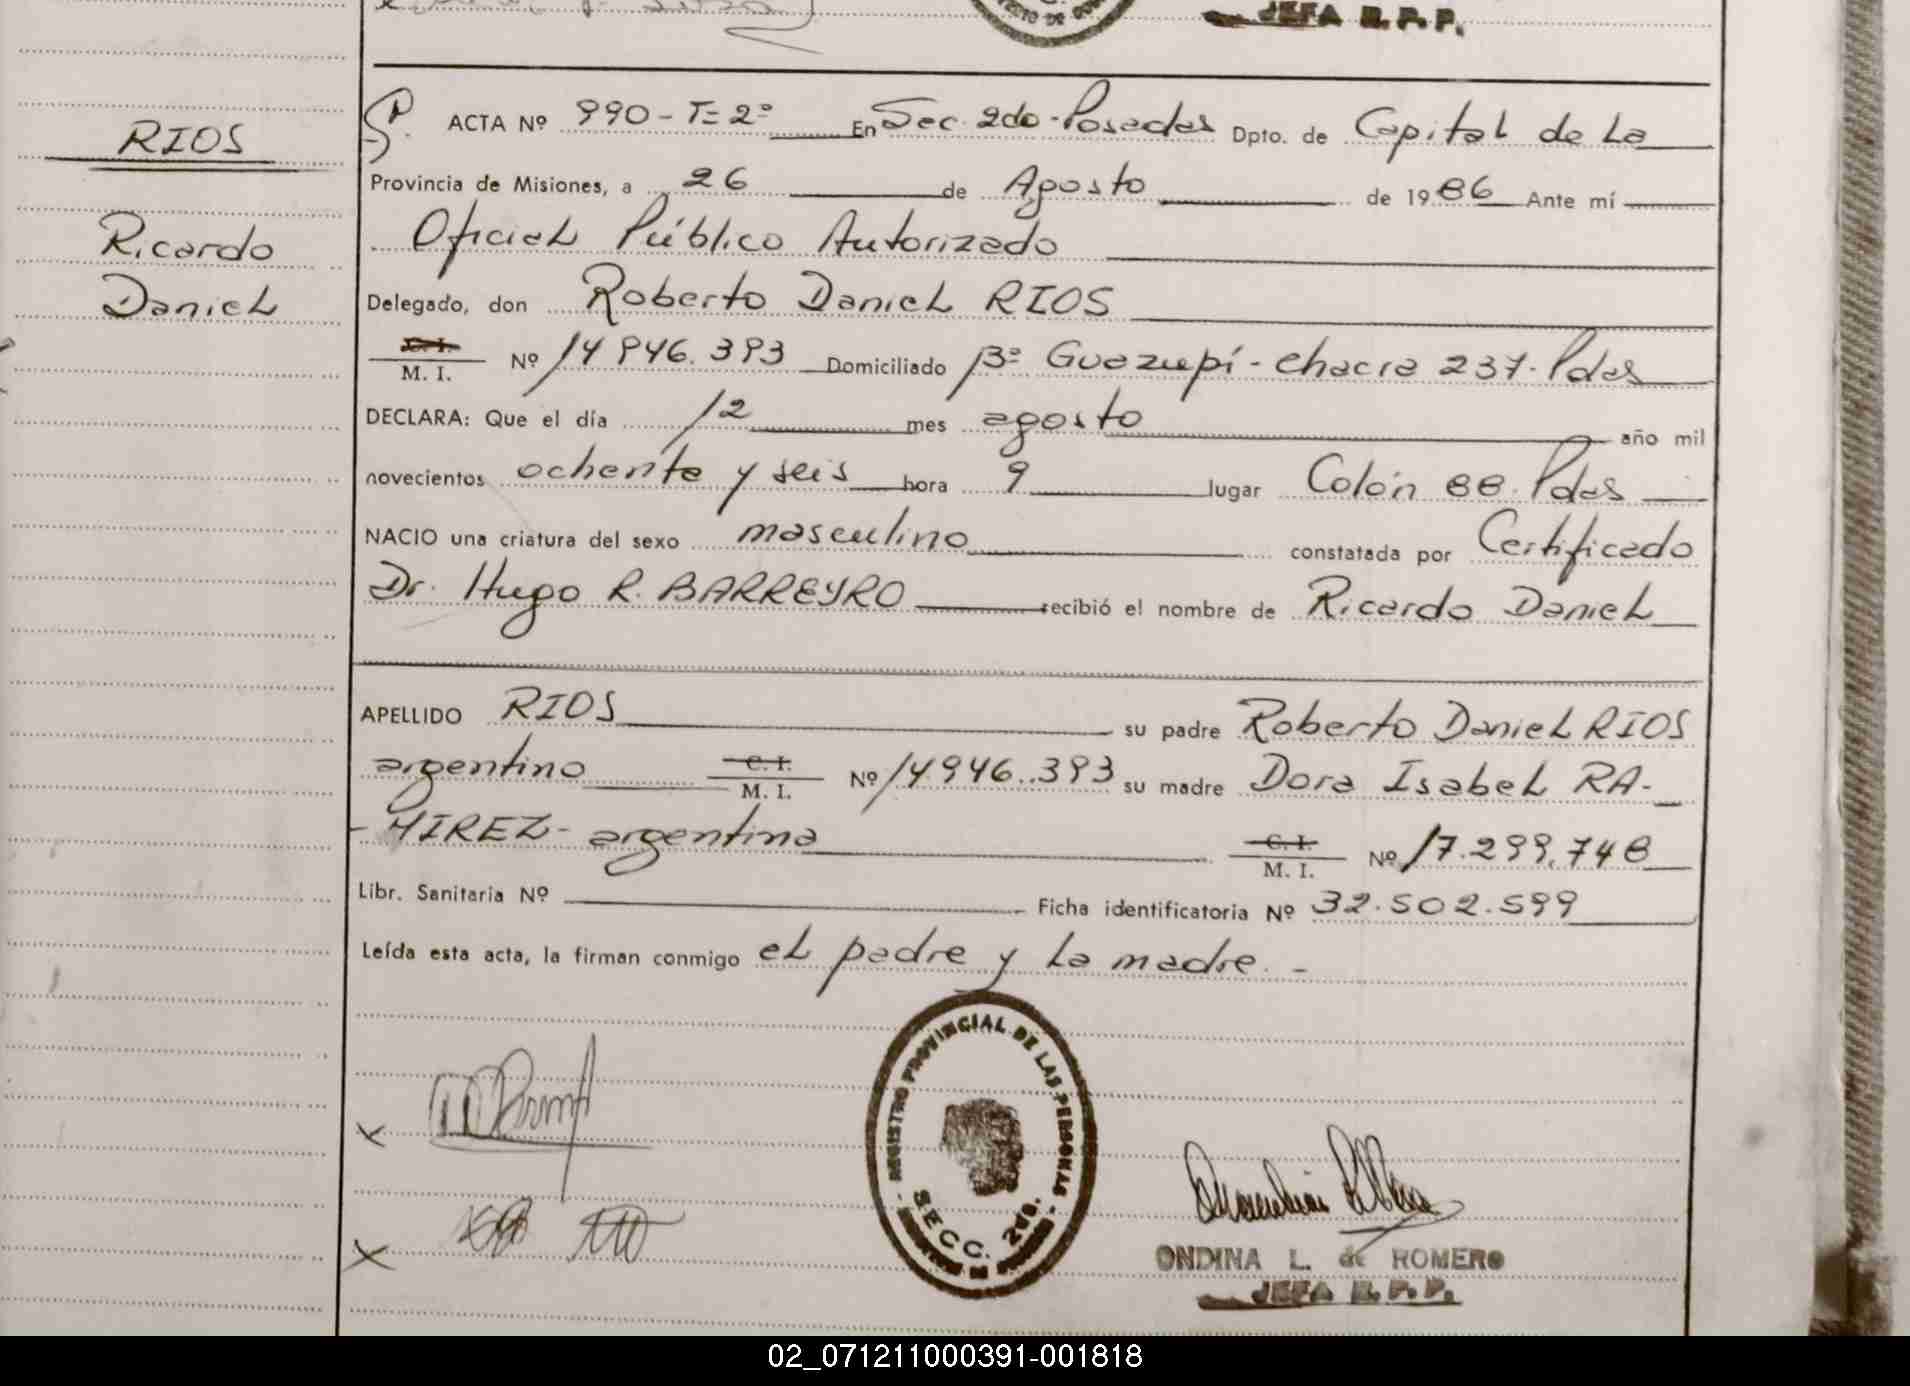 JEFA R.P.P.
RIOS
Ricardo
Daniel
ACTA Nº 990-T=2º En Sec. 2do-Posadas Dpto. de Capital de La
Provincia de Misiones, a 26 de Agosto de 1986 Ante mí
Oficial Público Autorizado
Delegado, don Roberto Daniel RIOS
C. I.
M. I. Nº 14946.393 Domiciliado Bº Guazupí-chacra 237-Pdas
DECLARA: Que el día 12 mes agosto año mil
novecientos ochenta y seis hora 9 lugar Colón 88. Pdas
NACIO una criatura del sexo masculino constatada por Certificado
Dr. Hugo R. BARREYRO recibió el nombre de Ricardo Daniel
APELLIDO RIOS su padre Roberto Daniel RIOS
argentino C. I. M. I. Nº 14946.393 su madre Dora Isabel RA-
-MIREZ- argentina C. I. M. I. Nº 17.299.748
Libr. Sanitaria Nº Ficha identificatoria Nº 32.502.599
Leída esta acta, la firman conmigo el padre y la madre.-
REGISTRO PROVINCIAL DE LAS PERSONAS
SECC. 2da.
ONDINA L. de ROMERO
JEFA R.P.P.
02_071211000391-001818